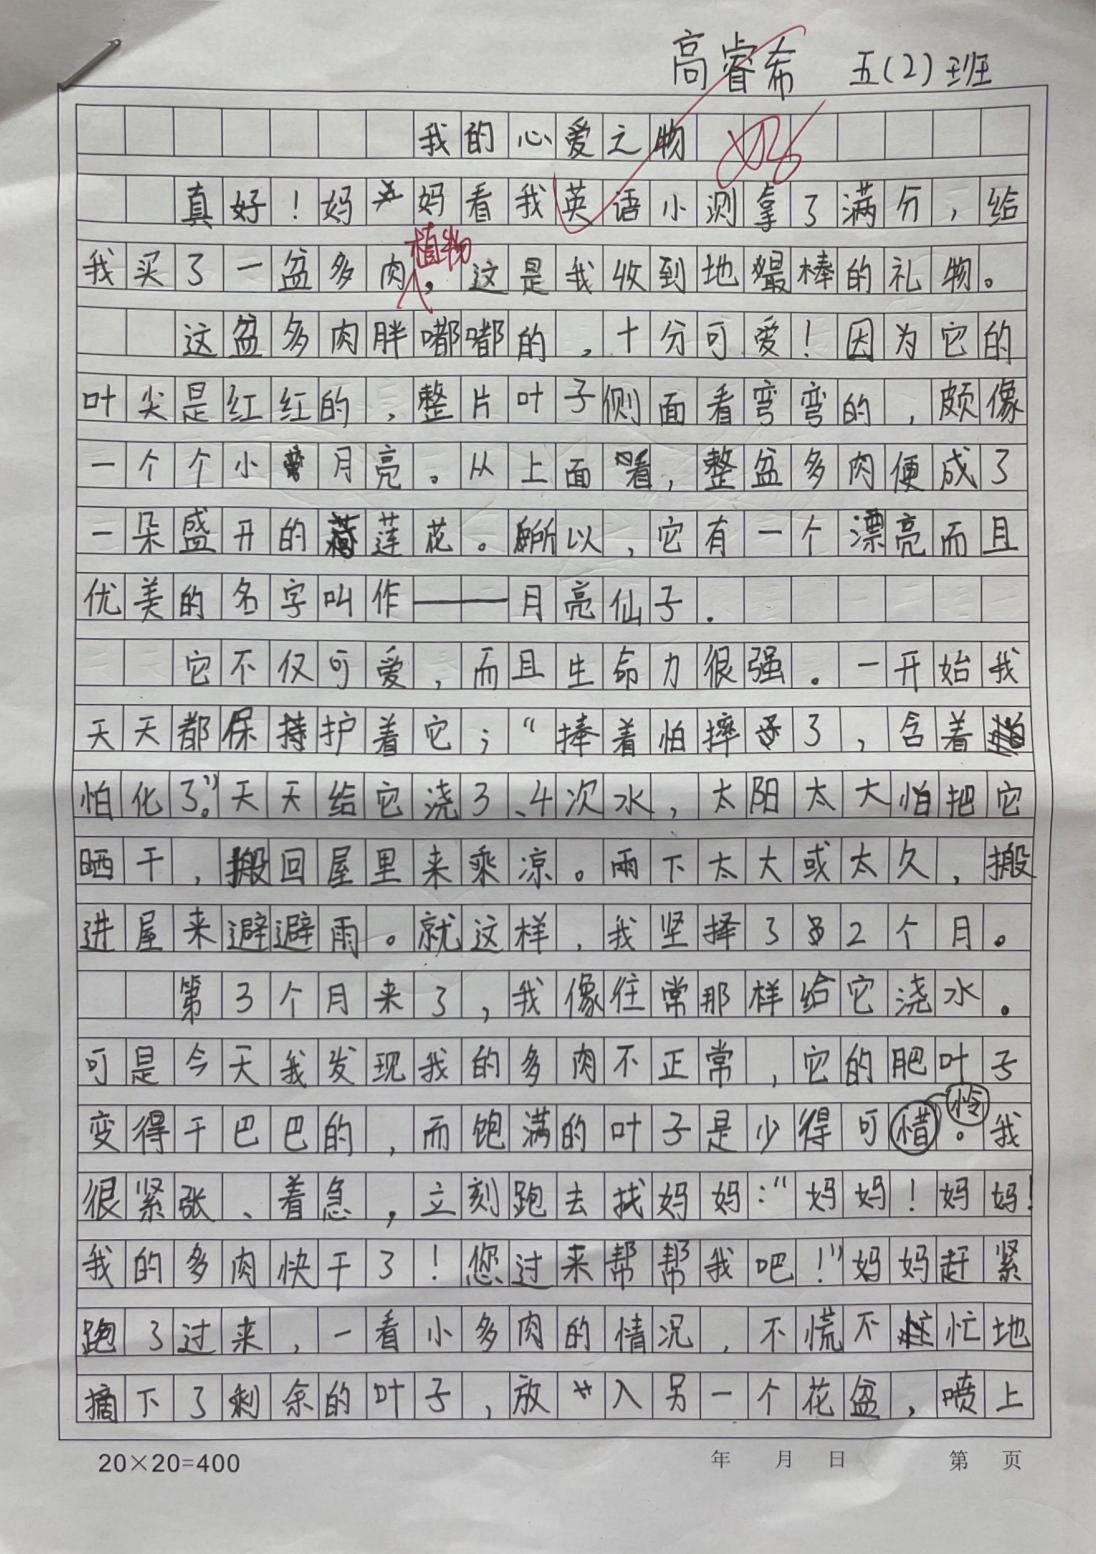 高睿希 五(2)班
我的心爱之物
真好！妈妈看我英语小测拿了满分，给
我买了一盆多肉植物，这是我收到地最棒的礼物。
这盆多肉胖嘟嘟的，十分可爱！因为它的
叶尖是红红的，整片叶子侧面看弯弯的，颇像
一个个小月亮。从上面看，整盆多肉便成了
一朵盛开的莲花。所以，它有一个漂亮而且
优美的名字叫作——月亮仙子．
它不仅可爱，而且生命力很强。一开始我
天天都保持护着它；“捧着怕摔了，含着
怕化了”。天天给它浇3、4次水，太阳太大怕把它
晒干，搬回屋里来乘凉。雨下太大或太久，搬
进屋来避避雨。就这样，我坚择了2个月。
第3个月来了，我像往常那样给它浇水。
可是今天我发现我的多肉不正常，它的肥叶子
变得干巴巴的，而饱满的叶子是少得可惜怜。我
很紧张、着急，立刻跑去找妈妈：“妈妈！妈妈！
我的多肉快干了！您过来帮帮我吧！”妈妈赶紧
跑了过来，一看小多肉的情况，不慌不忙地
摘下了剩余的叶子，放入另一个花盆，喷上
20×20=400 年 月 日 第 页